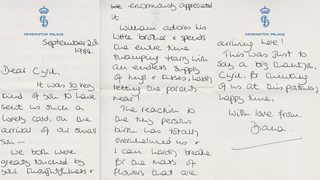 KENSINGTON PALACE
September 20th
1984.
Dear Cyril,
It was so very
kind of you to have
sent us such a
lovely card, on the
arrival of our small
son —
We both were
greatly touched by
your thoughtfulness &
enormously appreciated
it.
William adores his
little brother & spends
the entire time
swamping Harry with
an endless supply
of hugs & kisses, hardly
letting the parents
near!
The reaction to
one tiny persons
birth has totally
overwhelmed us &
I can hardly breathe
for the mass of
flowers that are
KENSINGTON PALACE
arriving here!
This was just to
say a big thank you
Cyril, for thinking
of us at this particularly
happy time,
With love from,
Diana.